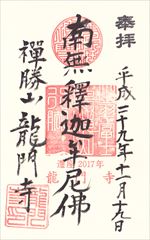 奉拝
平成二十九年十一月十九日
南無釋迦牟尼佛
禅勝山龍門寺
2017年